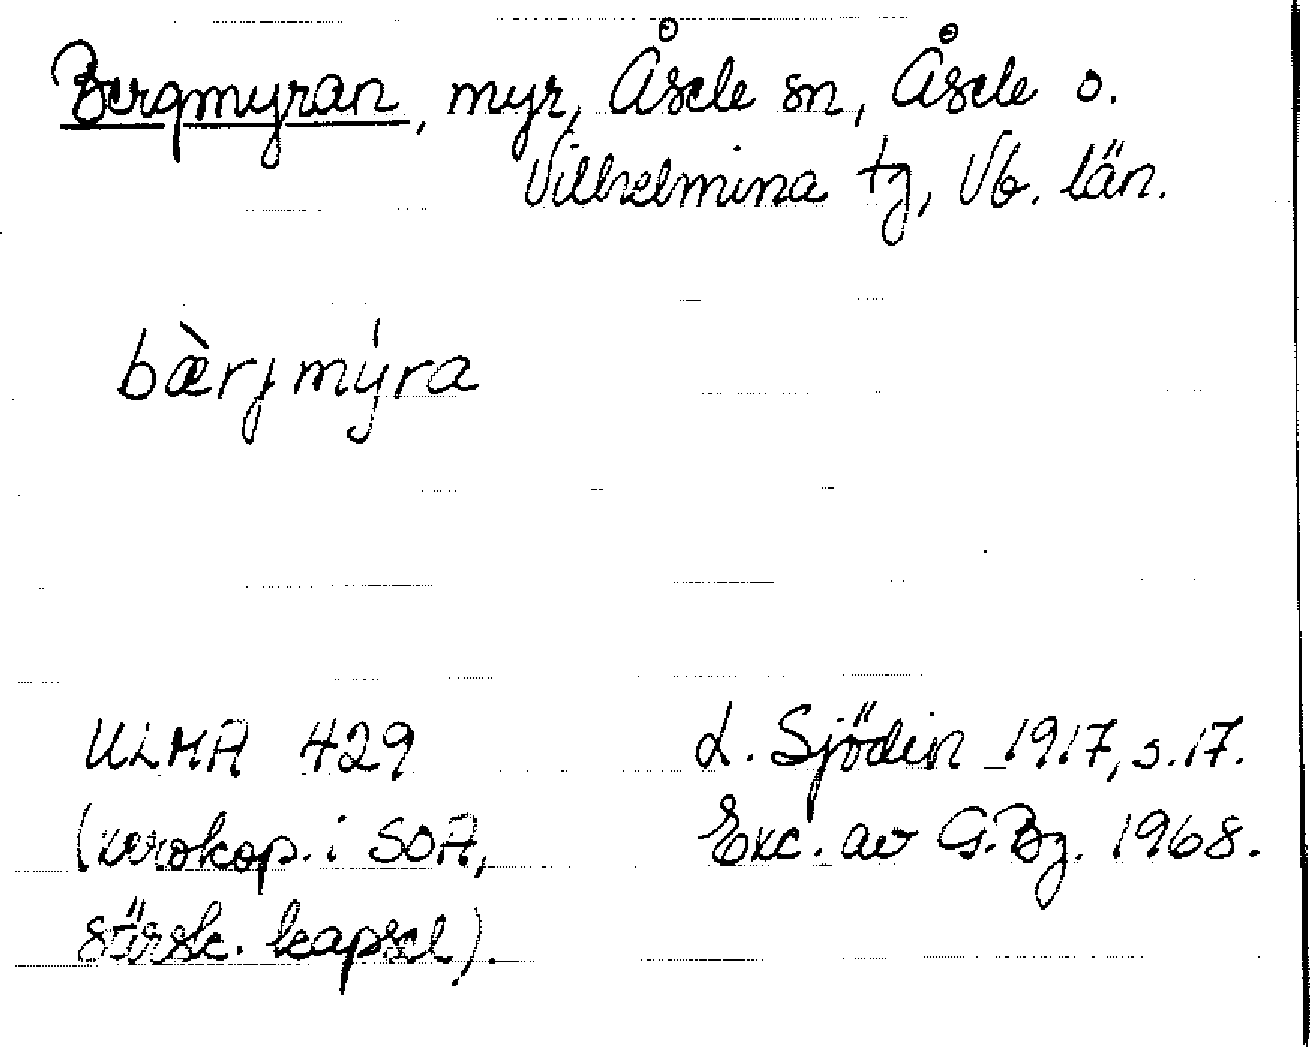 Bergmyran, myr, Åsele sn, Åsele o.
Vilhelmina tg, Vb. län.
bærjmýra
ULMA 429
L. Sjödin 1917, s. 17.
(xerokop. i SOA,
Exc. av G. Bg. 1968.
särsk. kapsel).